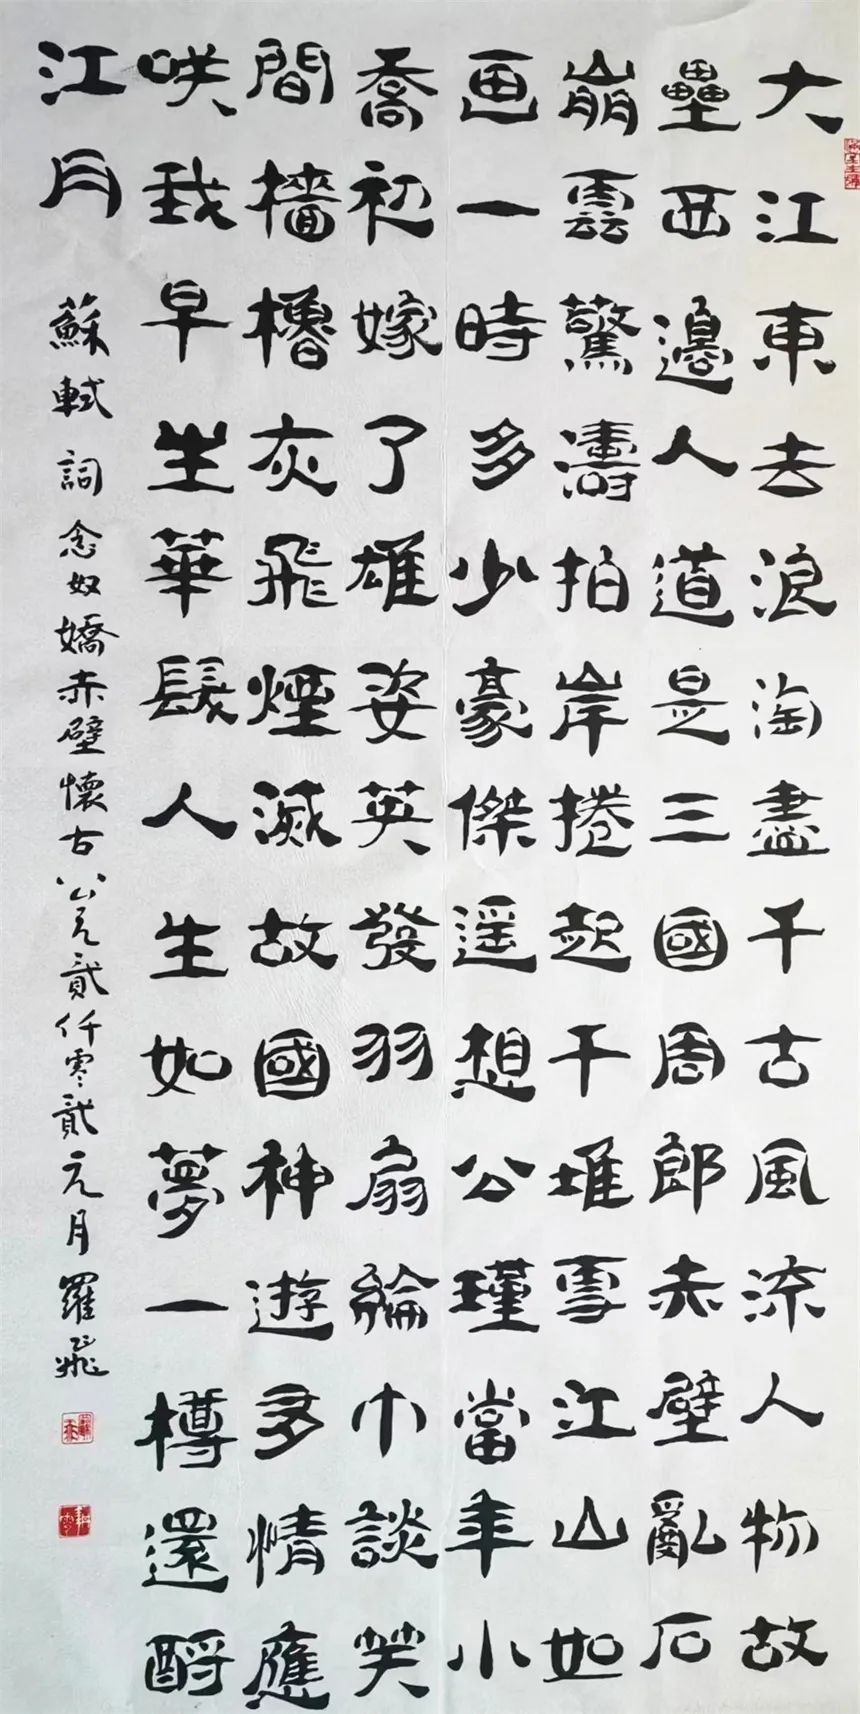 大江東去浪淘盡千古風流人物故
壘西邊人道是三國周郎赤壁亂石
崩雲驚濤拍岸捲起千堆雪江山如
画一時多少豪傑遥想公瑾當年小
喬初嫁了雄姿英發羽扇綸巾談笑
間檣櫓灰飛煙滅故國神遊多情應
咲我早生華髮人生如夢一樽還酹
江月
蘇軾詞念奴嬌赤壁懷古公元貳仟零貳元月羅飛